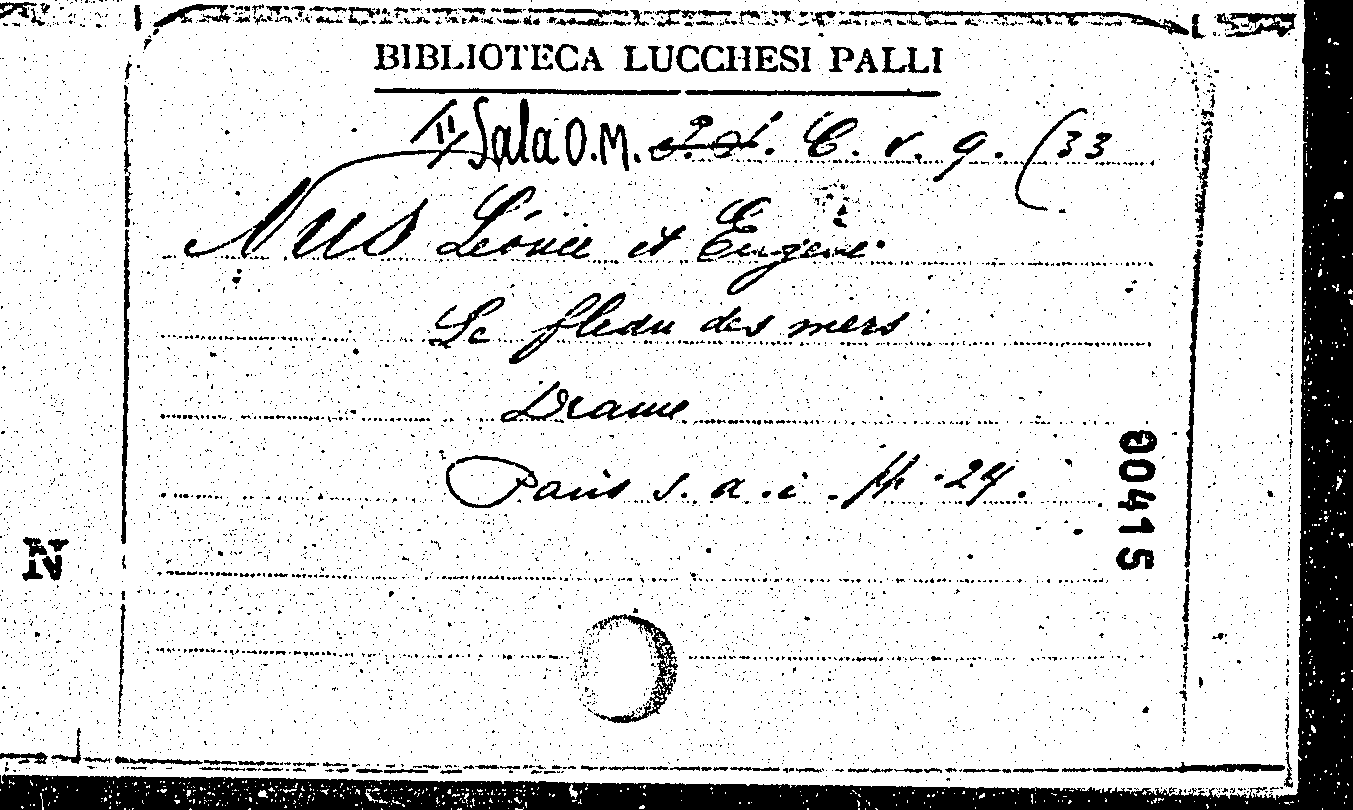 BIBLIOTECA LUCCHESI PALLI
II Sala O.M. C. v. 9. (33
Nus Léonce et Eugène
Le fleau des mers
Drame
Paris s. a. i. pp. 24.
00415
N